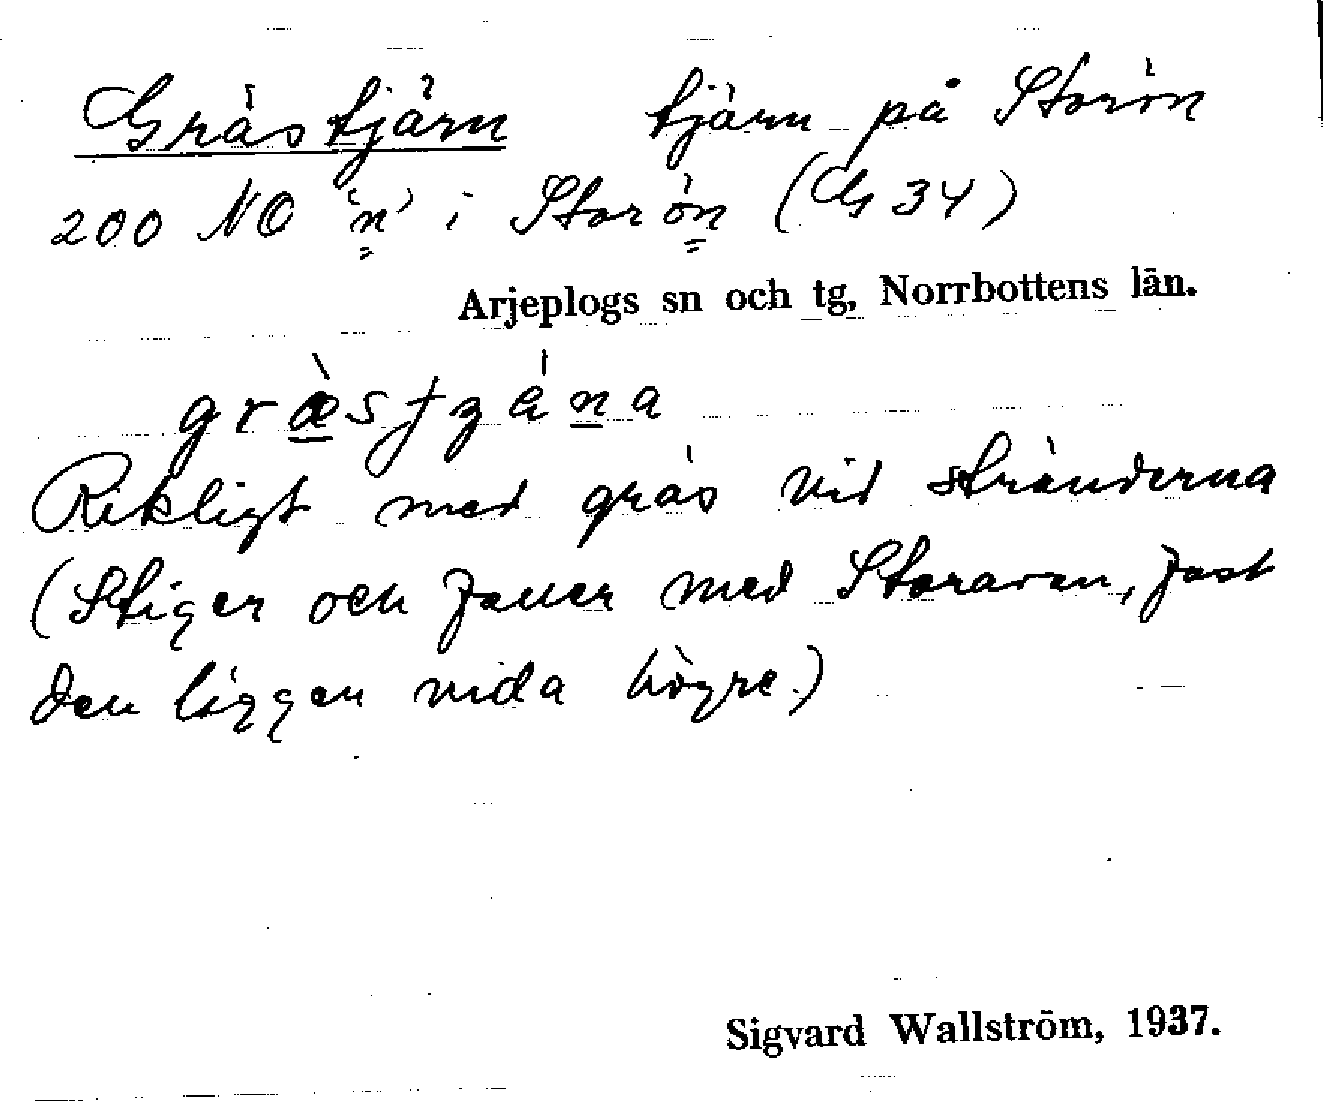 Grästjärn tjärn på Storön
200 NO 'n' i Storön (G 34)
Arjeplogs sn och tg, Norrbottens län.
Rikligt med gräs vid stränderna
(Stiger och faller med Storavan, fast
den ligger vida högre.)
Sigvard Wallström, 1937.